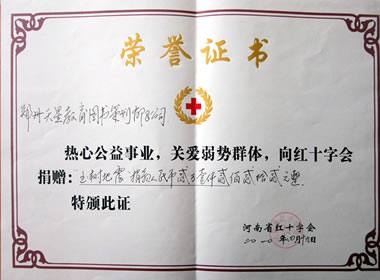 荣誉证书
郑州天星教育图书策划有限公司
热心公益事业，关爱弱势群体，向红十字会
捐赠：玉树地震捐款人民币贰万壹仟贰佰贰拾贰元整
特颁此证
河南省红十字会
二〇一〇年四月